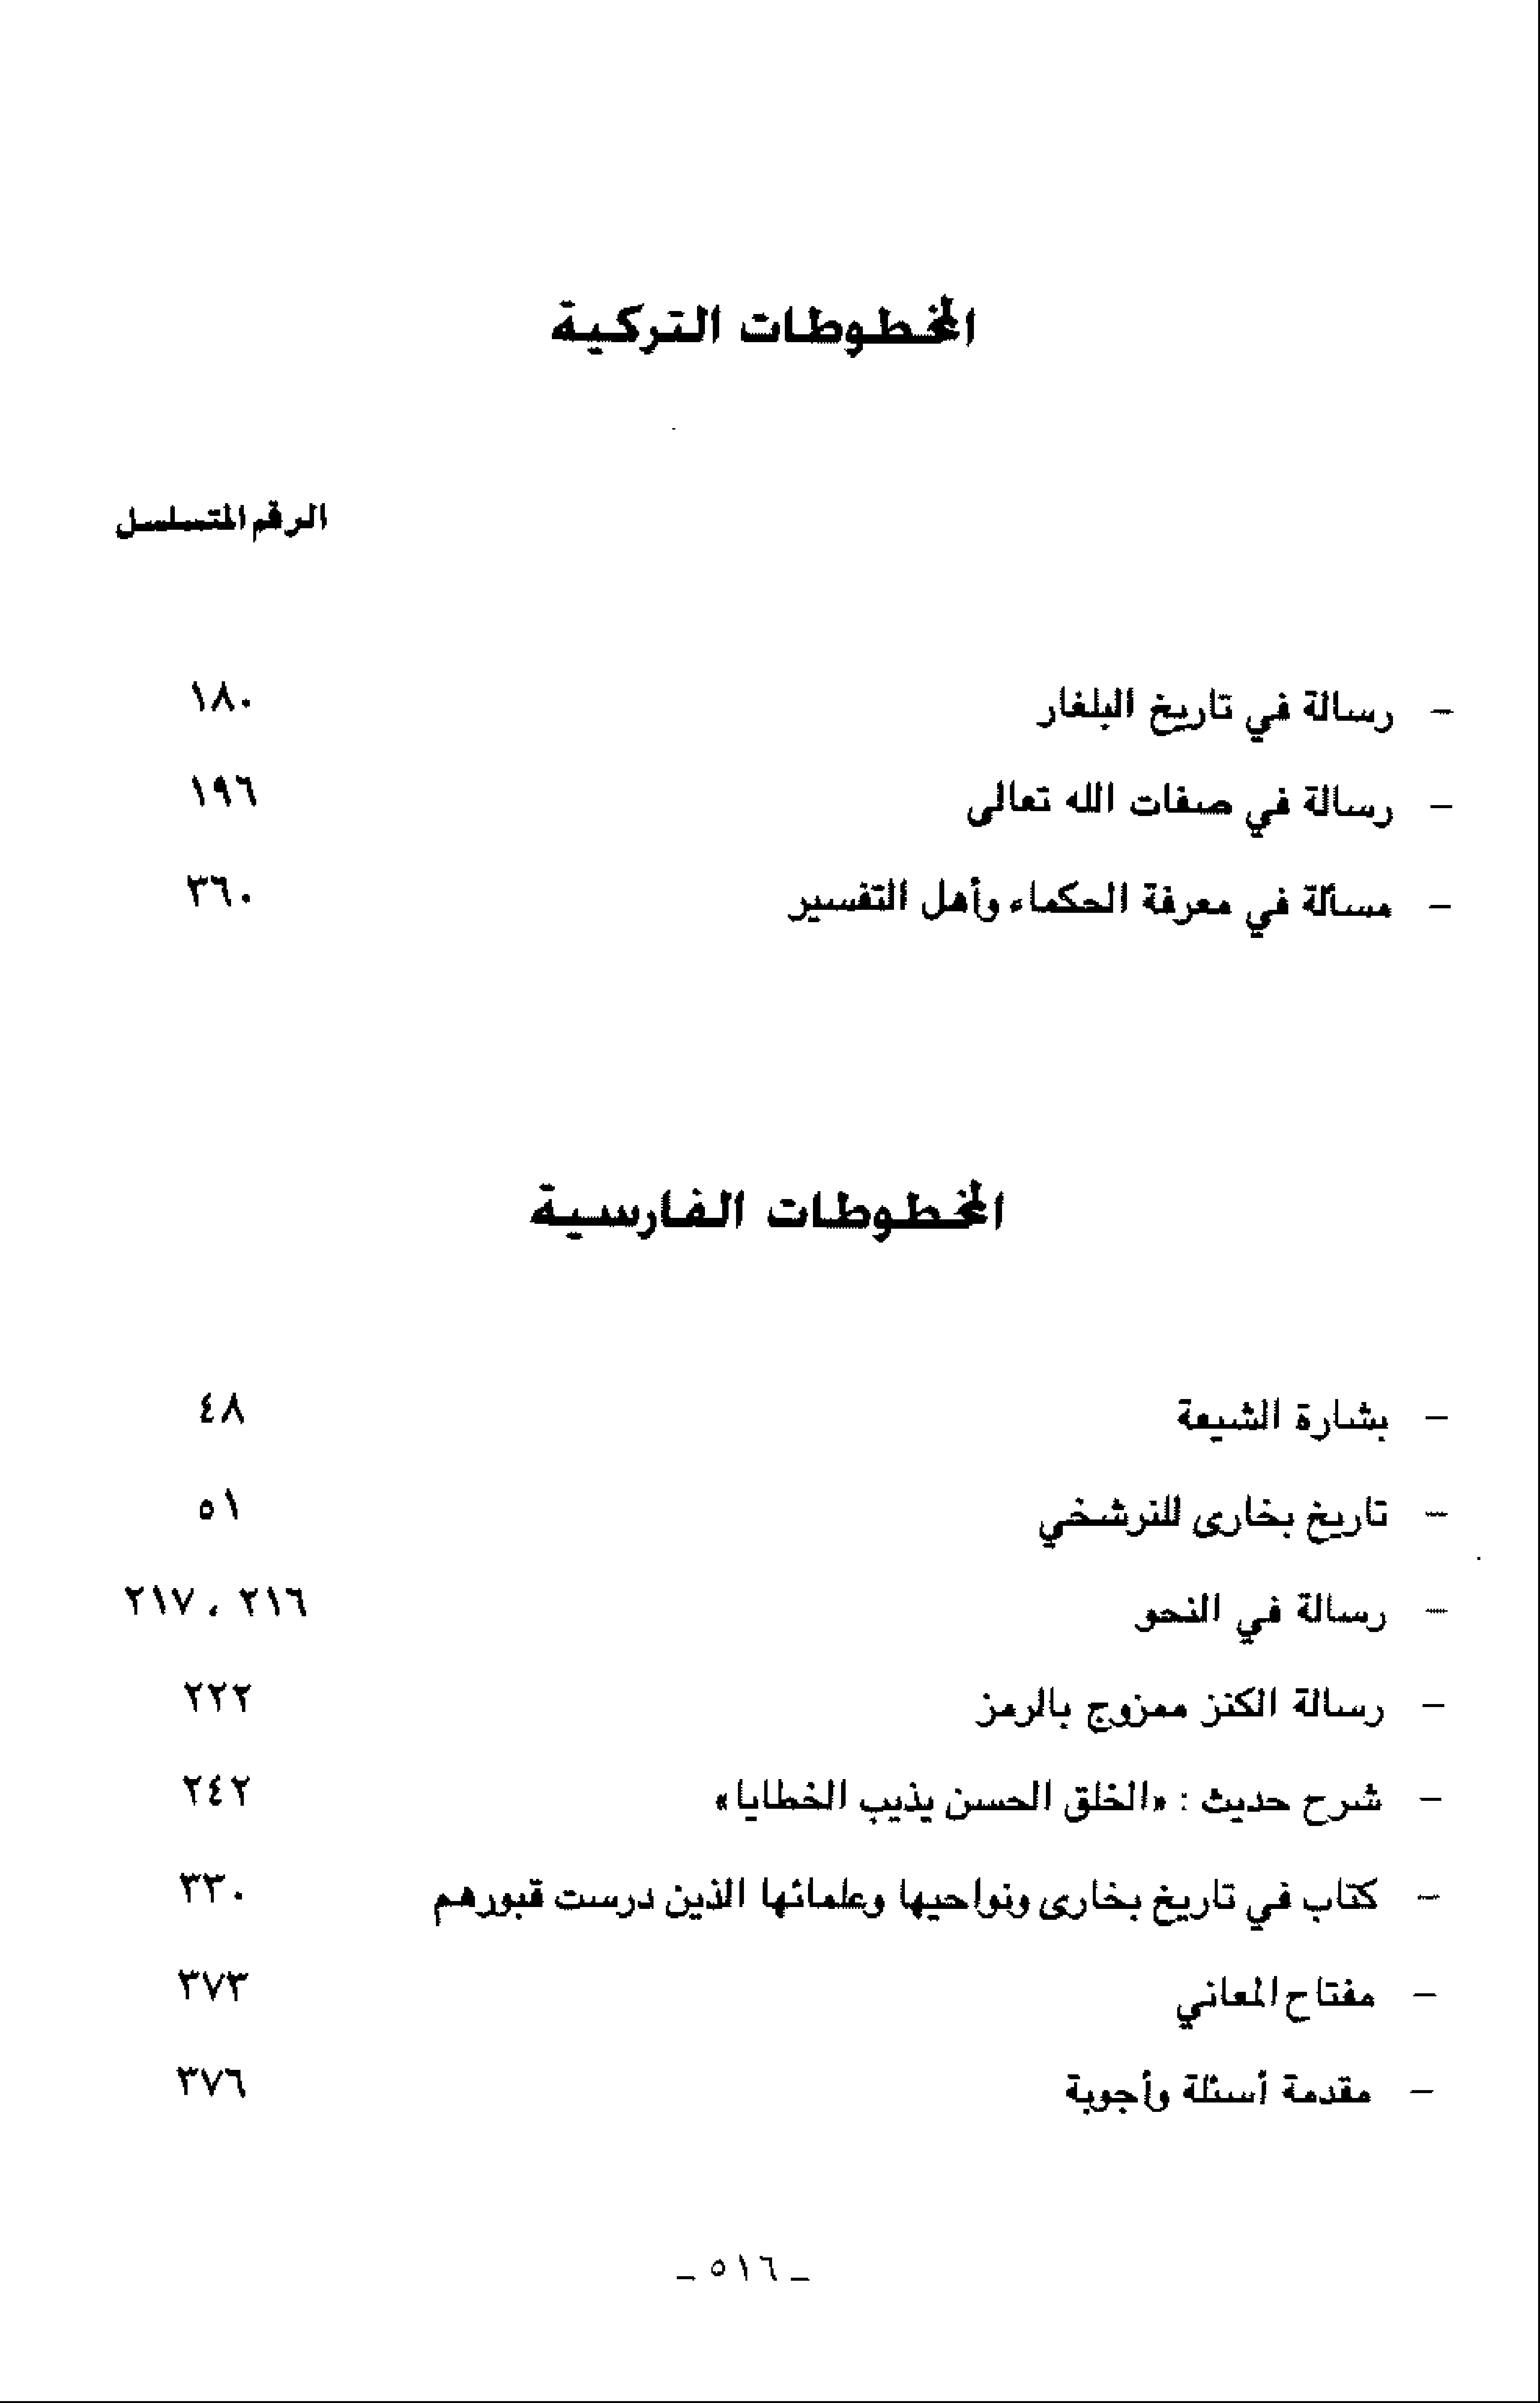 المخطوطات التركية
الرقم المتسلسل
– رسالة في تاريخ البلغار ١٨٠
– رسالة في صفات الله تعالى ١٩٦
– مسألة في معرفة الحكماء وأهل التفسير ٣٦٠
المخطوطات الفارسية
– بشارة الشيعة ٤٨
– تاريخ بخارى للنرشخي ٥١
– رسالة في النحو ٢١٦ ، ٢١٧
– رسالة الكنز ممزوج بالرمز ٢٢٢
– شرح حديث : «الخلق الحسن يذيب الخطايا» ٢٤٢
– كتاب في تاريخ بخارى ونواحيها وعلمائها الذين درست قبورهم ٣٣٠
– مفتاح المعاني ٣٧٣
– مقدمة أسئلة وأجوبة ٣٧٦
– ٥١٦ –